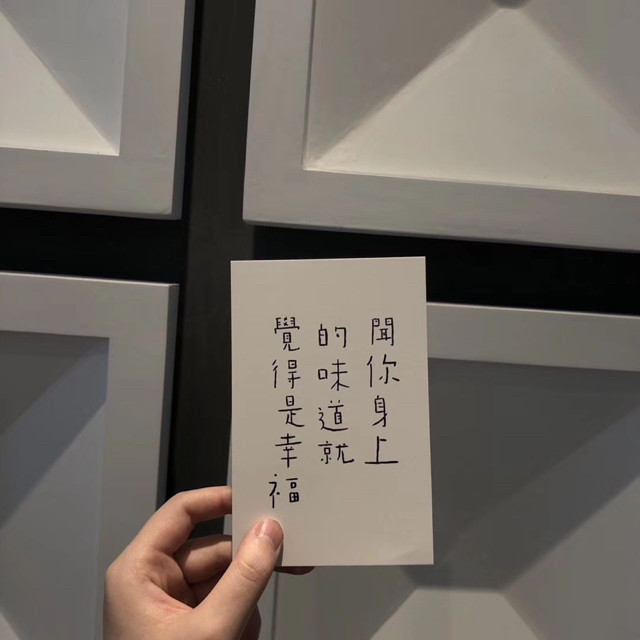 聞你身上
的味道就
覺得是幸福